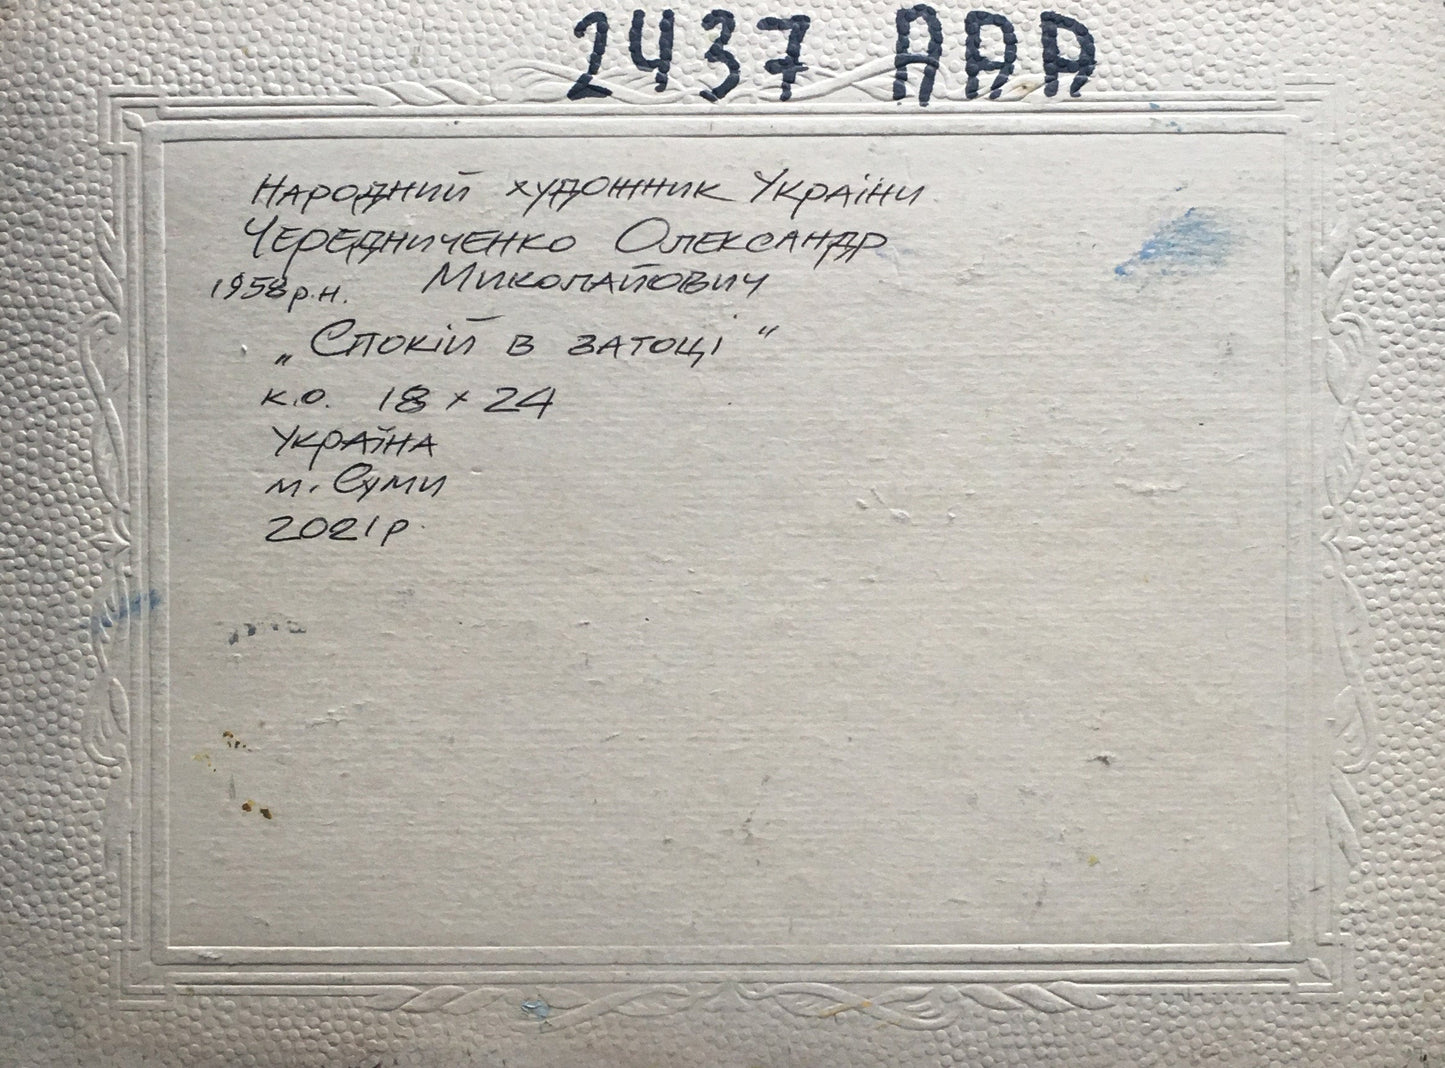 2437 ААА
Народний художник України
Чередниченко Олександр
1958 р.н. Миколайович
„Спокій в затоці“
к.о. 18 х 24
Україна
м. Суми
2021 р.